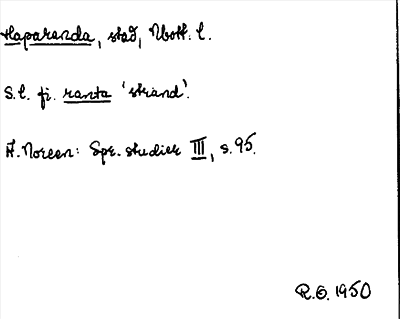 Haparanda, stad, Nbott. l.
S.l. fi. ranta 'strand'.
A. Noreen: Spr. studier III, s. 95.
R.O. 1950